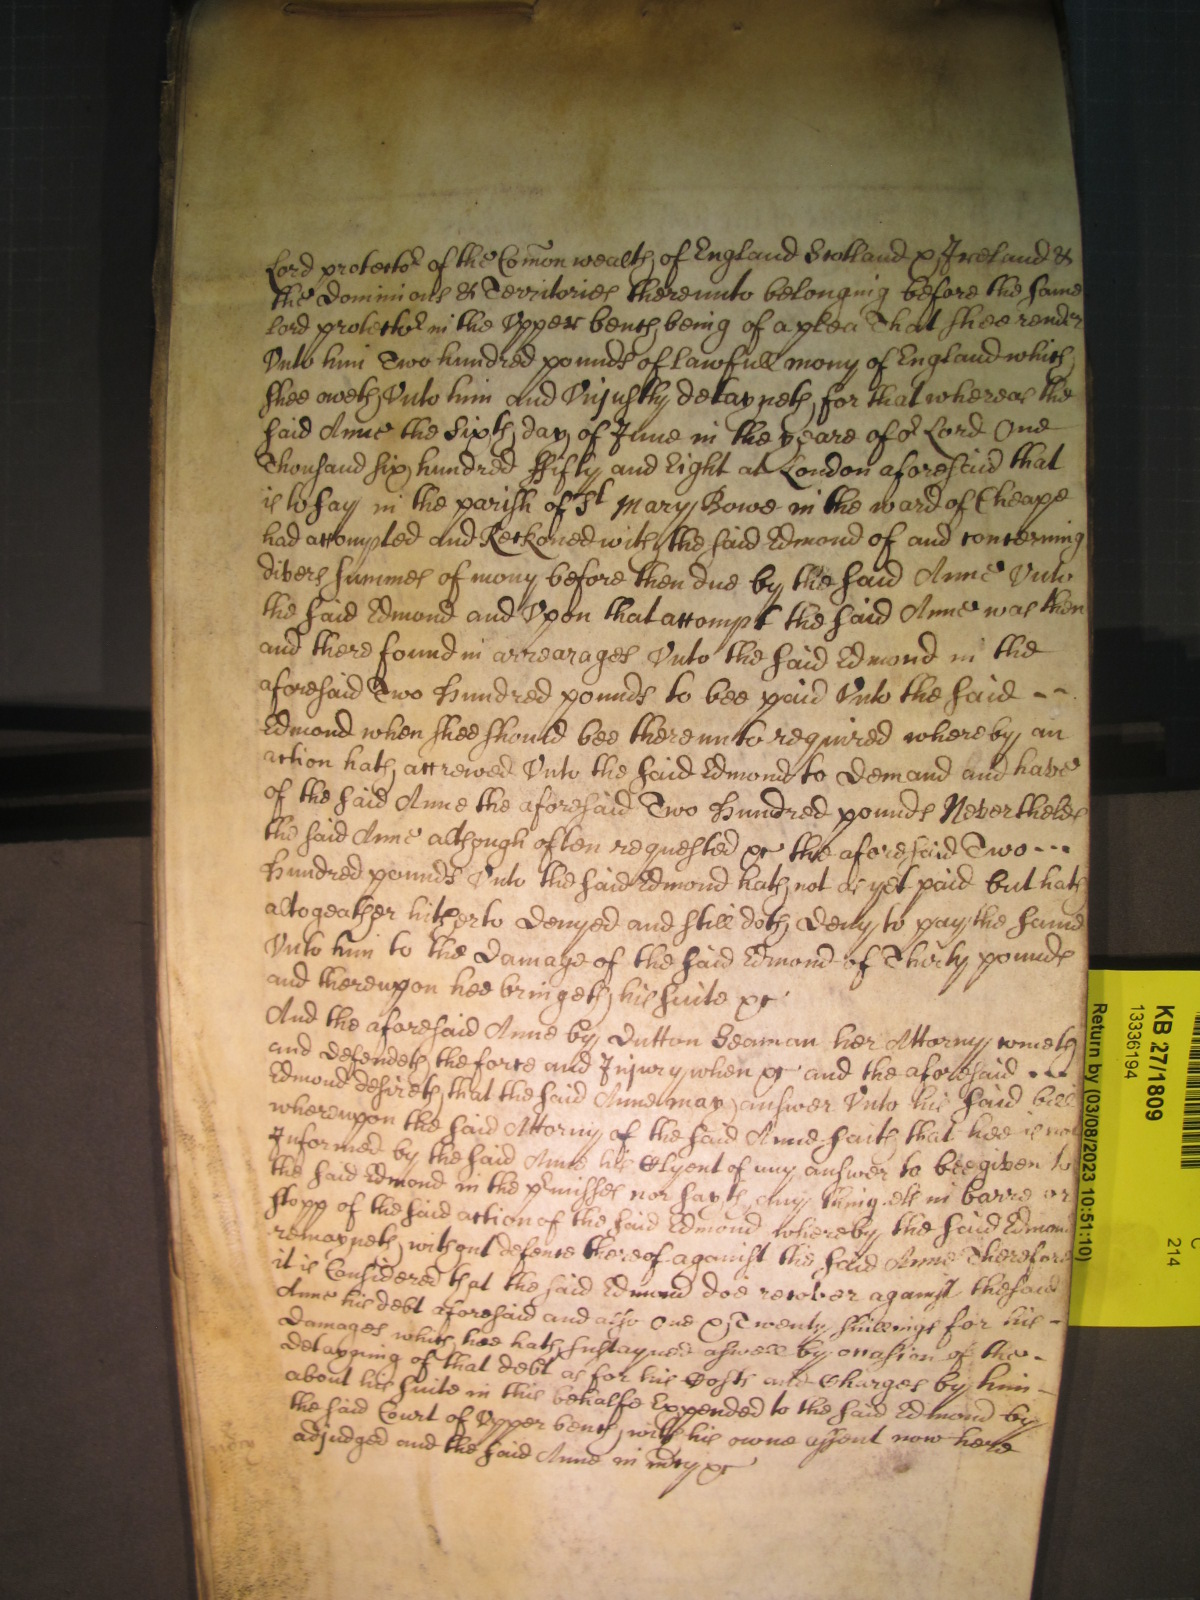 Lord protector of the Comon wealth of England Scotland & Ireland &
the Dominions & Territories thereunto belonging before the same
Lord protector in the Upper bench being of a plea That shee render
Unto him Two hundred pounds of lawfull mony of England which
shee oweth Unto him and Unjustly detayneth for that whereas the
said Anne the Sixth day of June in the yeare of or Lord One
Thousand six hundred ffifty and Eight at London aforesaid that
is to say in the parish of St Mary Bowe in the ward of Cheape
had accompted and Reckoned with the said Edmond of and concerning
divers summes of mony before then due by the said Anne Unto
the said Edmond and Upon that accompt the said Anne was then
and there found in arrearages Unto the said Edmond in the
aforesaid Two Hundred pounds to bee paid Unto the said
Edmond when shee should bee thereunto required whereby an
action hath accrewed Unto the said Edmond to Demand and have
of the said Anne the aforesaid Two Hundred pounds Neverthelesse
the said Anne although often requested &c the aforesaid Two
Hundred pounds Unto the said Edmond hath not as yet paid but hath
altogeather hitherto Denyed and still doth Deny to pay the same
Unto him to the Damage of the said Edmond of Thirty pounds
and thereupon hee bringeth his suite &c
And the aforesaid Anne by Dutton Seaman her Attorny cometh
and Defendeth the force and Injury when &c and the aforesaid
Edmond desireth that the said Anne may answer Unto his said bill
whereupon the said Attorny of the said Anne saith that hee is not
Informed by the said Anne his Clyent of any answer to bee given to
the said Edmond in the pr misses nor sayth any thing els in barre or
stopp of the said action of the said Edmond whereby the said Edmond
remayneth without defence thereof against the said Anne Therefore
it is Considered that the said Edmond doe recover against the said
Anne his debt aforesaid and also One & Twenty shillings for his
Damages which hee hath Sustayned aswell by occasion of the
Detayning of that debt as for his Costs and Charges by him
about his suite in this behalfe Expended to the said Edmond by
the said Court of Upper bench with his owne assent now here
adjudged and the said Anne in mcy &c
KB 27/1809
13336194
Return by (03/08/2023 10:51:10)
214